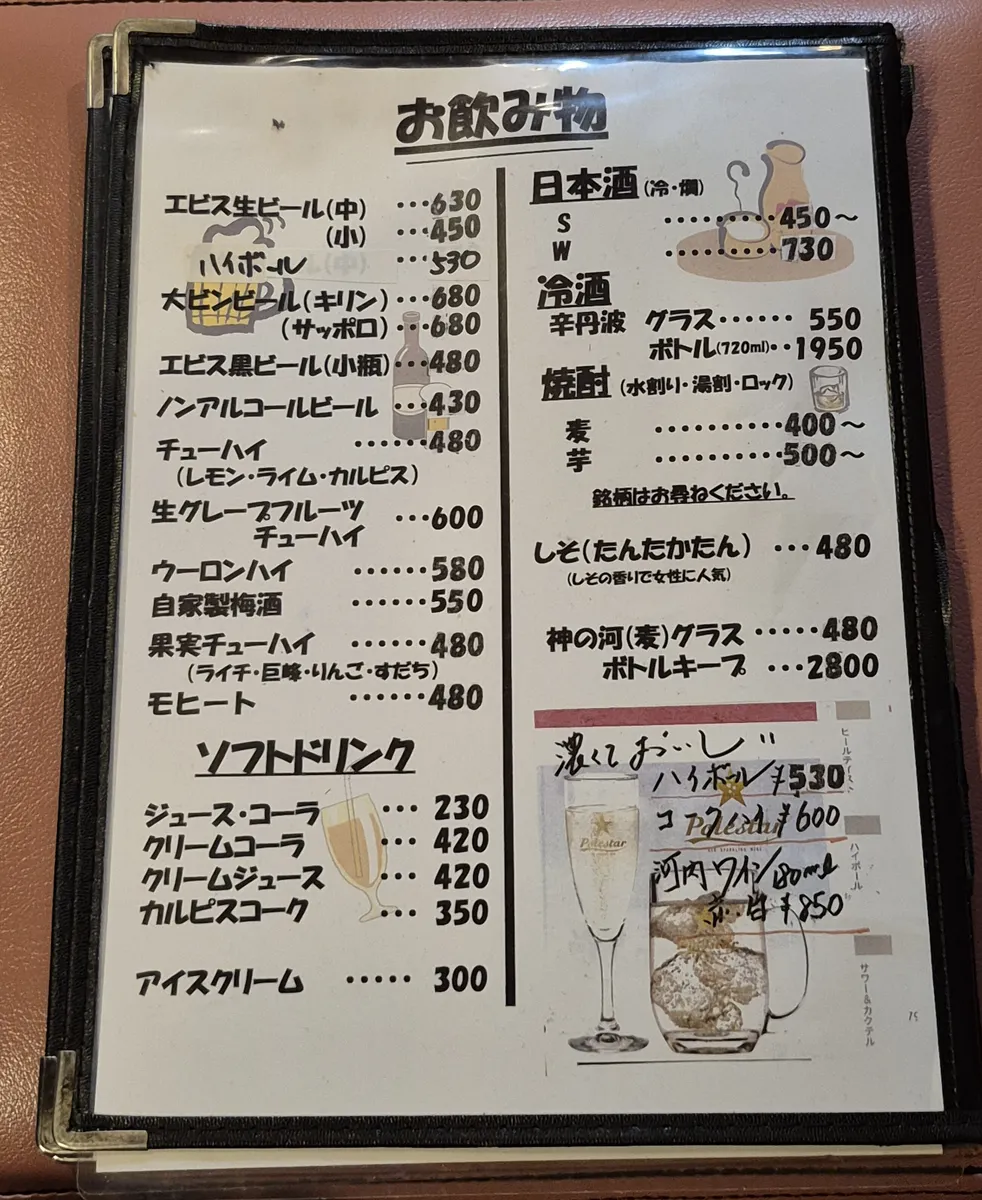 お飲み物
エビス生ビール(中) ・・・630
(小) ・・・450
ハイボール ・・・530
大ビンビール(キリン) ・・・680
(サッポロ)・・・680
エビス黒ビール(小瓶)・・・480
ノンアルコールビール ・・・430
チューハイ ・・・・・・480
(レモン・ライム・カルピス)
生グレープフルーツ
チューハイ ・・・600
ウーロンハイ ・・・・・・580
自家製梅酒 ・・・・・・550
果実チューハイ ・・・・・・480
(ライチ・巨峰・りんご・すだち)
モヒート ・・・・・・480
ソフトドリンク
ジュース・コーラ ・・・ 230
クリームコーラ ・・・ 420
クリームジュース ・・・ 420
カルピスコーク ・・・ 350
アイスクリーム ・・・・・ 300
日本酒(冷・燗)
S ・・・・・・・・・・450～
W ・・・・・・・・・・730
冷酒
辛丹波 グラス・・・・・・ 550
ボトル(720ml)・・1950
焼酎 (水割り・湯割・ロック)
麦 ・・・・・・・・・・400～
芋 ・・・・・・・・・・500～
銘柄はお尋ねください。
しそ(たんたかたん) ・・・480
(しその香りで女性に人気)
神の河(麦)グラス ・・・・・480
ボトルキープ ・・・2800
濃くておいしい
ハイボール ¥530
¥600
Polestar
河内ワイン180ml
赤・白 ¥850
Polestar
ハイボール
サワー&カクテル